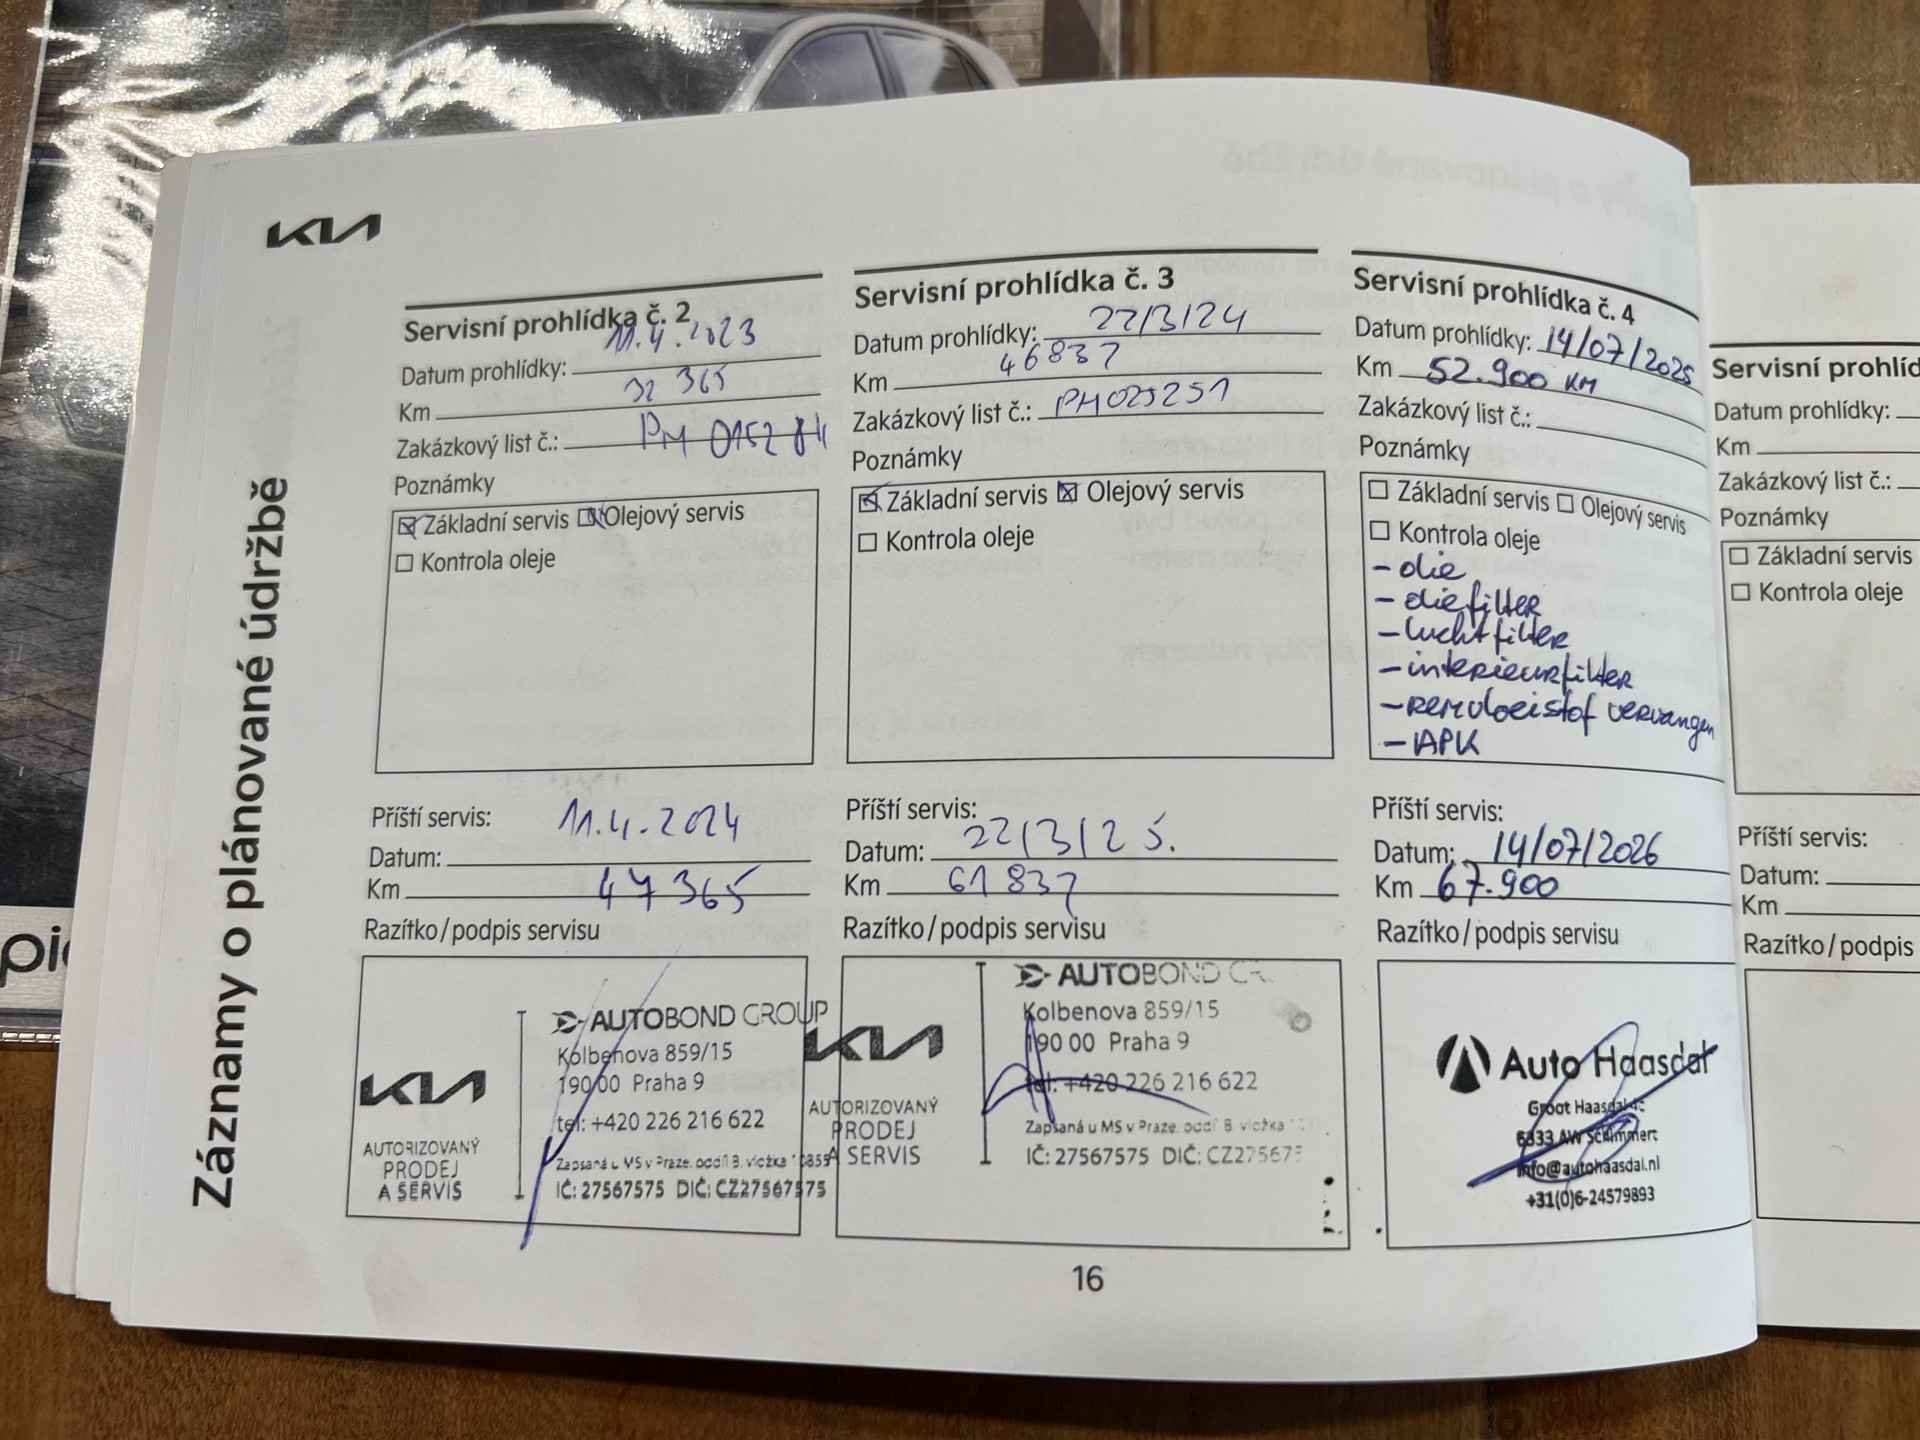 KIA
Záznamy o plánované údržbě
Servisní prohlídka č. 2
Datum prohlídky: 11.4.2023
Km 32 365
Zakázkový list č.: PM 015284
Poznámky
Základní servis Olejový servis
Kontrola oleje
Příští servis: 11.4.2024
Datum:
Km 47 365
Razítko/podpis servisu
KIA
AUTORIZOVANÝ
PRODEJ
A SERVIS
AUTOBOND GROUP
Kolbenova 859/15
190 00 Praha 9
tel: +420 226 216 622
Zapsaná u MS v Praze, oddíl B, vložka
IČ: 27567575 DIČ: CZ27567575
Servisní prohlídka č. 3
Datum prohlídky: 22/3/24
Km 46837
Zakázkový list č.: PM025251
Poznámky
Základní servis Olejový servis
Kontrola oleje
Příští servis:
Datum: 22/3/25.
Km 61 837
Razítko/podpis servisu
KIA
AUTORIZOVANÝ
PRODEJ
A SERVIS
AUTOBOND
Kolbenova 859/15
190 00 Praha 9
tel: +420 226 216 622
Zapsaná u MS v Praze, oddíl B, vložka
IČ: 27567575 DIČ: CZ275675
Servisní prohlídka č. 4
Datum prohlídky: 14/07/2025
Km 52.900 KM
Zakázkový list č.:
Poznámky
Základní servis Olejový servis
Kontrola oleje
- olie
- oliefilter
- luchtfilter
- interieurfilter
- remvloeistof vervangen
- APK
Příští servis:
Datum: 14/07/2026
Km 67.900
Razítko/podpis servisu
Auto Haasdal
Groot Haasdal
6333 AW Schimmert
info@autohaasdal.nl
+31(0)6-24579893
Servisní prohlíd
Datum prohlídky:
Km
Zakázkový list č.:
Poznámky
Základní servis
Kontrola oleje
Příští servis:
Datum:
Km
Razítko/podpis
16
pi